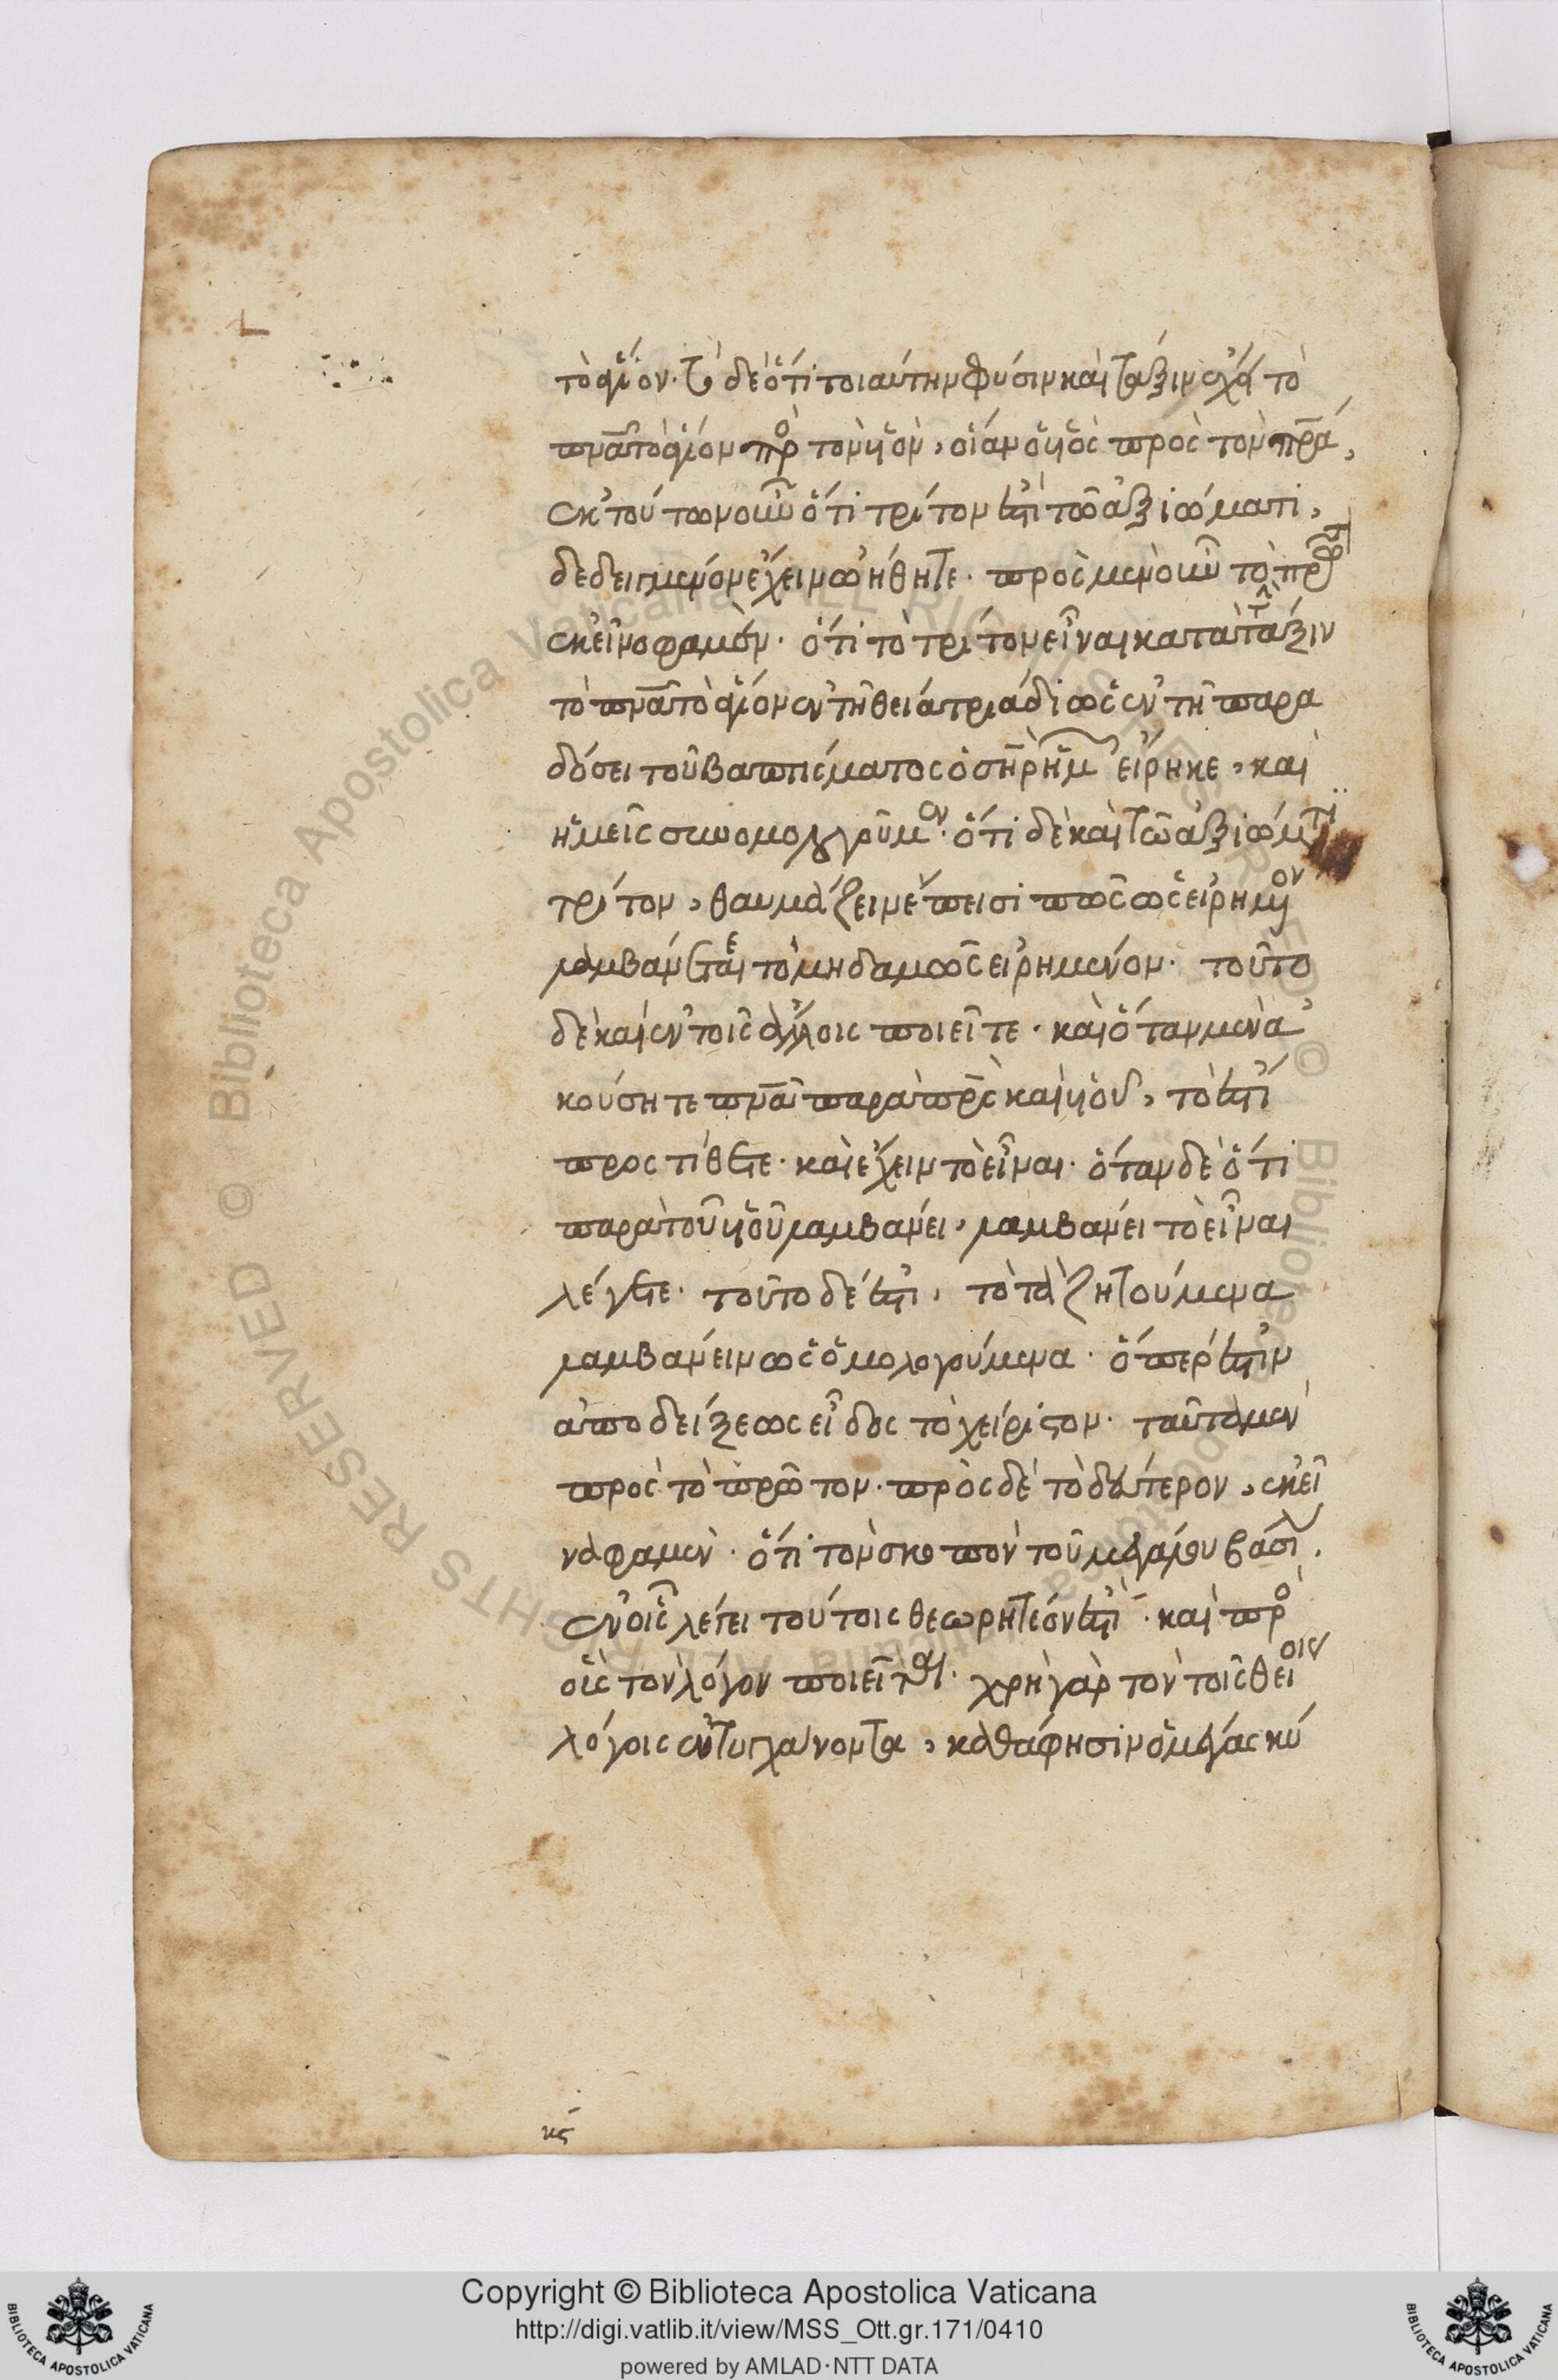 τὸ ἅγιον. τὸ δὲ ὅτι τοιαύτην φύσιν καὶ τάξιν ἔχει τὸ
πνᾶ τὸ ἅγιον πρὸ τὸν υἱὸν, οἵαν ὁ υἱὸς πρὸς τὸν πρᾶ,
ἐκ τούτων οὖν ὅτι τρίτον ἐστὶ τῶ ἀξιώματι,
δεδειγμένον ἔχειν ὠήθητε. πρὸς μὲν οὖν τὸ
ἐκεῖνο φαμὲν. ὅτι τὸ τρίτον εἶναι κατὰ τὴν τάξιν
τὸ πνᾶ τὸ ἅγιον ἐν τῆ θεία τριάδι ὡς ἐν τῆ παρα
δόσει τοῦ βαπτίσματος ὁ σὴρ ἡμῶν εἴρηκε, καὶ
ἡμεῖς συνομολογοῦμεν. ὅτι δὲ καὶ τῶ ἀξιώμτι
τρίτον, θαυμάζειν ἔπεισι πῶς ὡς εἰρημένον
λαμβάνεται τὸ μηδαμῶς εἰρημένον. τοῦτο
δὲ καὶ ἐν τοῖς ἄλλοις ποιεῖτε. καὶ ὅταν μὲν ἀ
κούσητε πνᾶ παρὰ πρς καὶ υἱοῦ, τὸ ἐστὶ
προστίθετε. καὶ ἔχειν τὸ εἶναι. ὅταν δὲ ὅτι
παρὰ τοῦ υἱοῦ λαμβάνει, λαμβάνει τὸ εἶναι
λέγετε. τοῦτο δέ ἐστι, τὸ τὰ ζητούμενα
λαμβάνειν ὡς ὁμολογούμενα. ὅπερ ἐστὶν
ἀποδείξεως εἶδος τὸ χείριστον. ταῦτα μὲν
πρὸς τὸ πρῶτον. πρὸς δὲ τὸ δεύτερον, ἐκεῖ
να φαμὲν. ὅτι τὸν σκοπὸν τοῦ μεγάλου βασι.
ἐν οἷς λέγει τούτοις θεωρητέον ἐστὶ. καὶ πρὸ
οἷς τὸν λόγον ποιεῖται. χρὴ γὰρ τὸν τοῖς θείοις
λόγοις ἐντυγχάνοντα, καθά φησιν ὁ μέγας κύ
κς
Copyright © Biblioteca Apostolica Vaticana
http://digi.vatlib.it/view/MSS_Ott.gr.171/0410
powered by AMLAD·NTT DATA
BIBLIOTECA APOSTOLICA VATICANA
BIBLIOTECA APOSTOLICA VATICANA
© Biblioteca Apostolica Vaticana ALL RIGHTS RESERVED